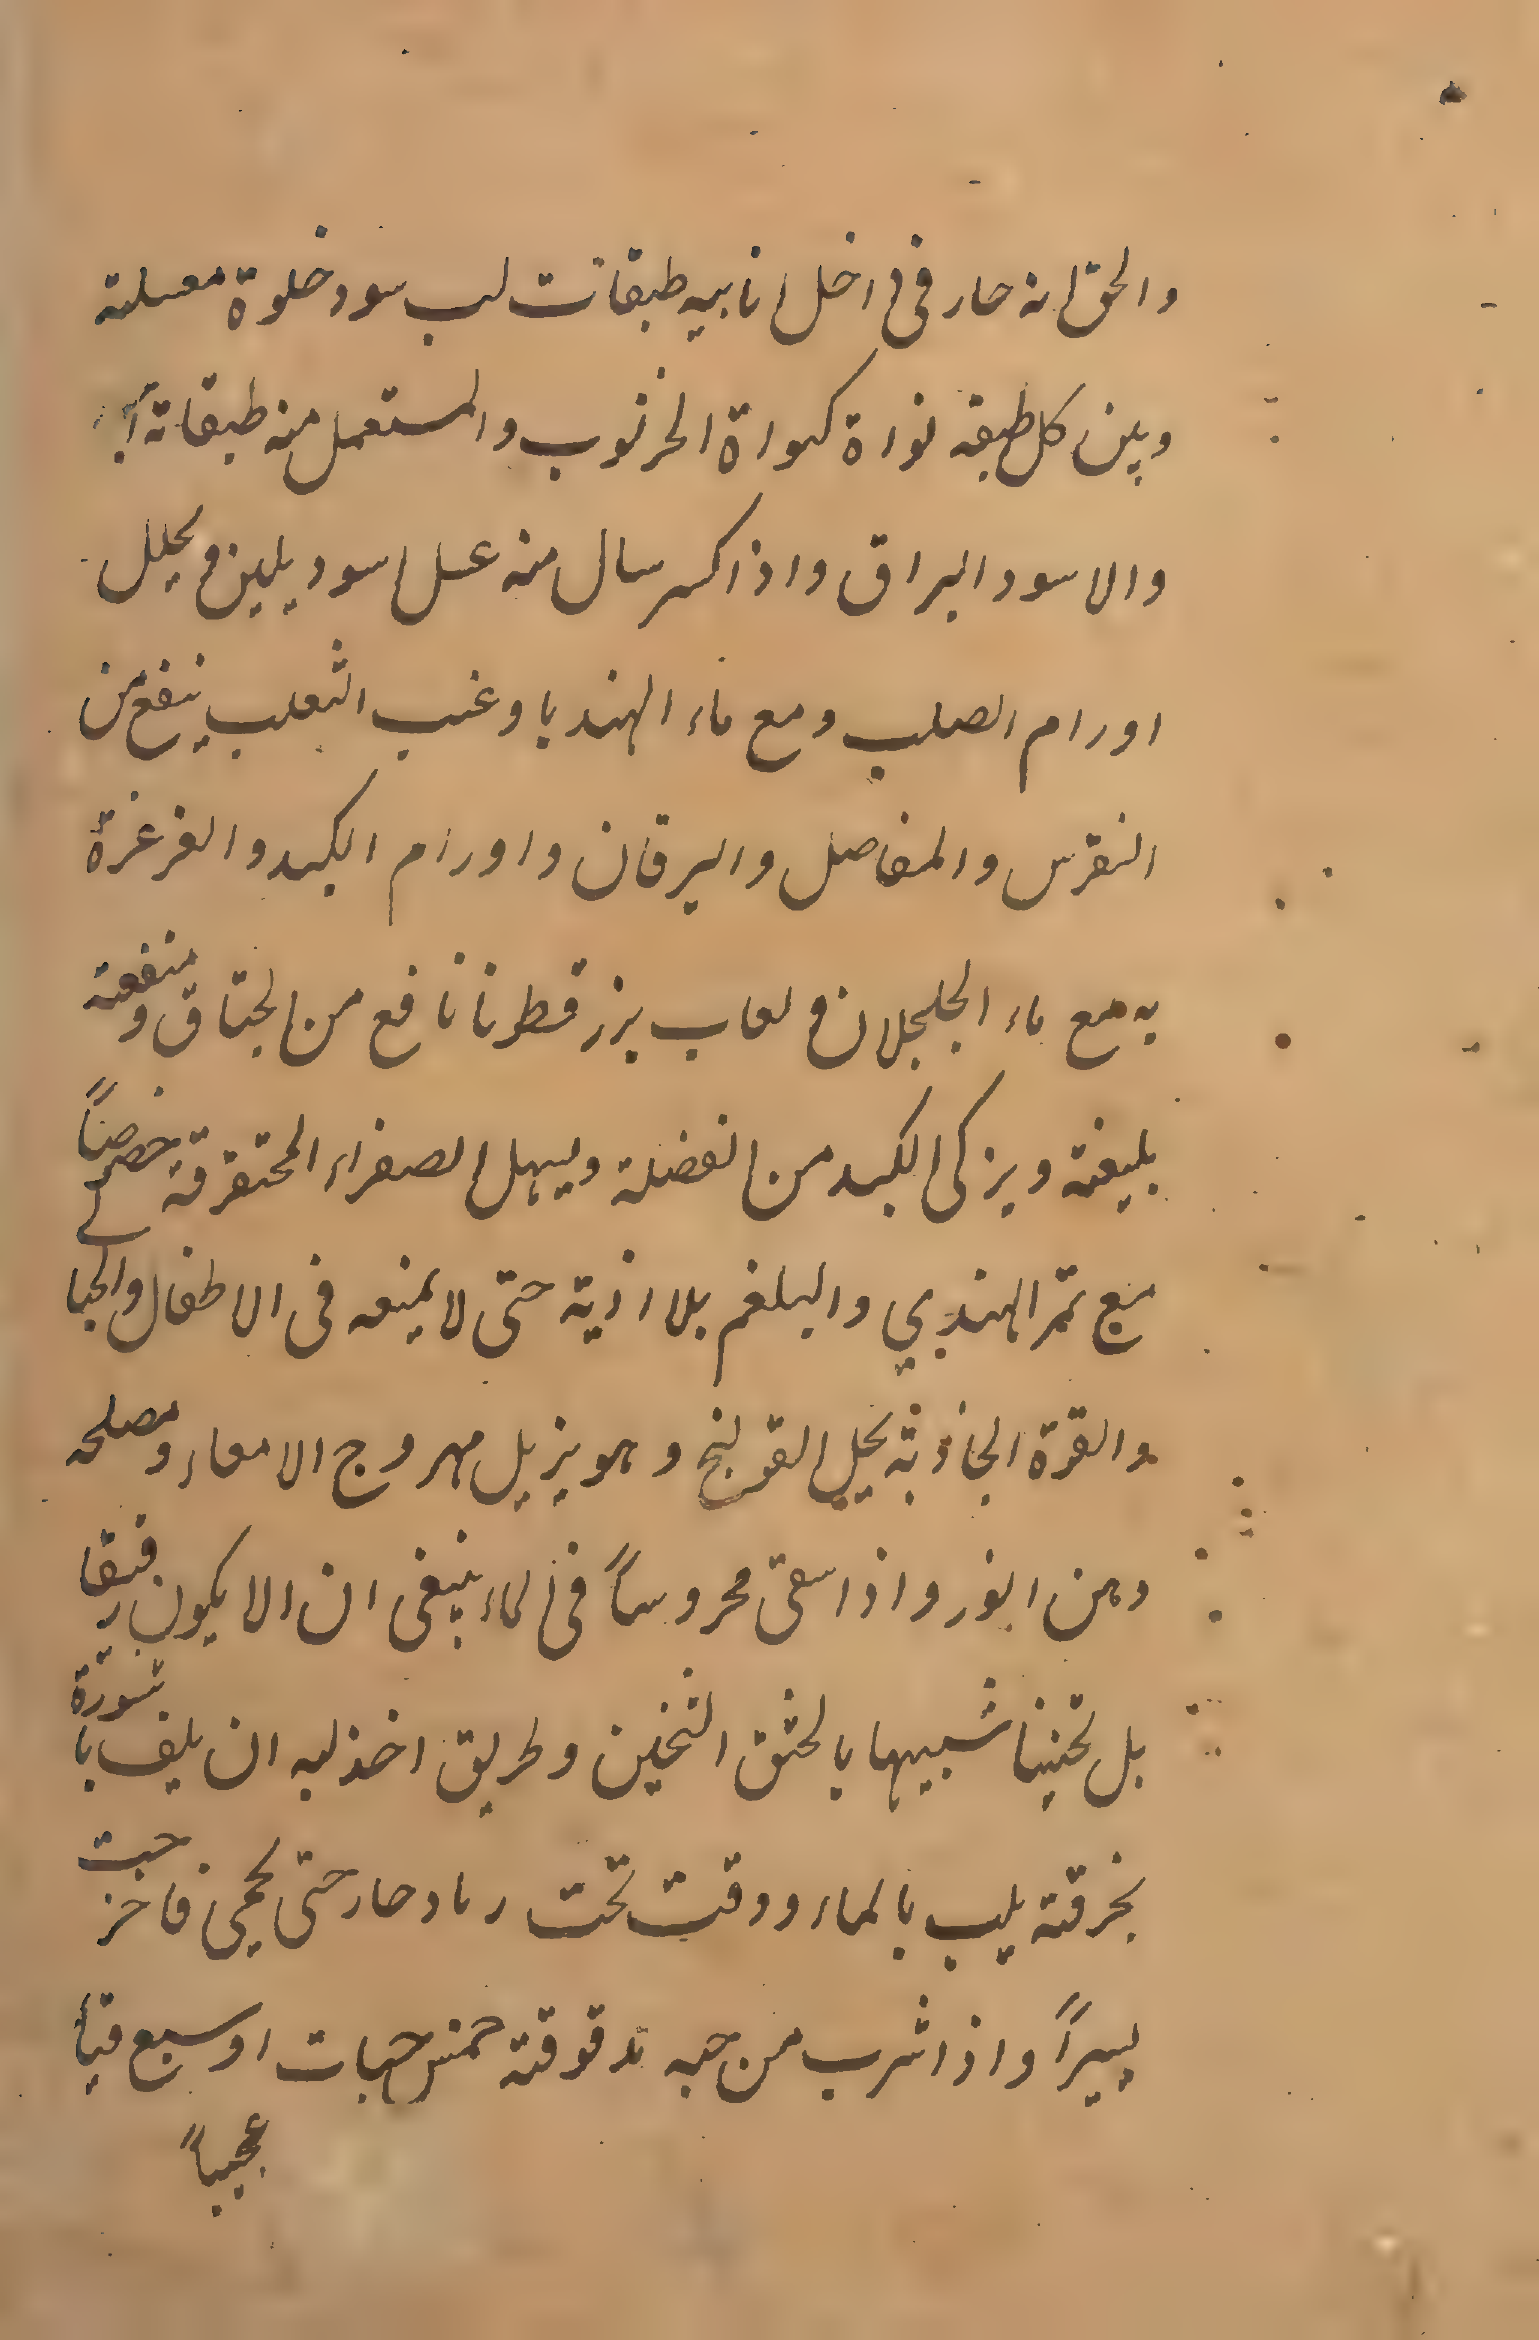 والحق انه حار فى داخل انابيبه طبقات لب سود حلوة معسلة
وبين كل طبقة نواة كنواة الخرنوب والمستعمل منه طبقاته
والاسود البراق واذا كسر سال منه عسل اسود يلين ويحلل
اورام الصلب ومع ماء الهندبا وعنب الثعلب ينفع من
النقرس والمفاصل واليرقان واورام الكبد والغرغرة
به مع ماء الجلجلان و لعاب بزر قطونا نافع من الخناق ومنفعة
بليغة ويزكى الكبد من الفضلة ويسهل الصفراء المحترقة خصوصاً
مع تمر الهندي والبلغم بلا اذية حتى لا يمنعه فى الاطفال والحبالى
والقوة الجاذبة يحل القولنج وهو يزيل مهروج الامعاء ومصلحه
دهن اللوز واذا سقى محروساً فى الماء ينبغى ان الا يكون رقيقا
بل ثخينا شبيها بالخثق الثخين وطريق اخذ لبه ان يلف با
بخرقة يلب بالماء ودقت تحت رماد حار حتى يحمى فاخرجت
يسيراً واذا شرب من حبه مدقوقة خمس حبات او سبع قيأ
عجيباً